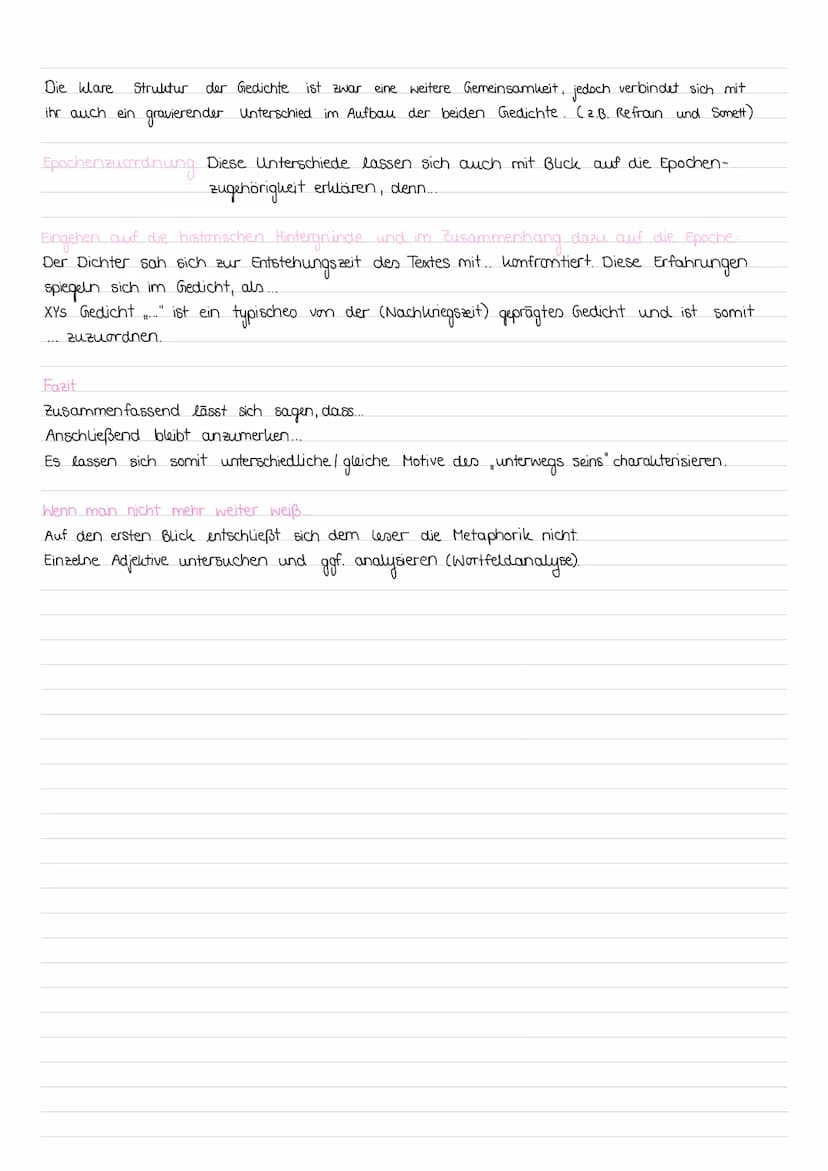 Die klare Struktur der Gedichte ist zwar eine weitere Gemeinsamkeit, jedoch verbindet sich mit
ihr auch ein gravierender Unterschied im Aufbau der beiden Gedichte. (z.B. Refrain und Sonett)
Epochenzuordnung Diese Unterschiede lassen sich auch mit Blick auf die Epochen-
zugehörigkeit erklären, denn...
Eingehen auf die historischen Hintergründe und im Zusammenhang dazu auf die Epoche
Der Dichter sah sich zur Entstehungszeit des Textes mit.. konfrontiert. Diese Erfahrungen
spiegeln sich im Gedicht, als...
XYs Gedicht „..." ist ein typisches von der (Nachkriegszeit) geprägtes Gedicht und ist somit
... zuzuordnen.
Fazit
Zusammenfassend lässt sich sagen, dass...
Anschließend bleibt anzumerken...
Es lassen sich somit unterschiedliche/gleiche Motive des „unterwegs seins" charakterisieren.
Wenn man nicht mehr weiter weiß...
Auf den ersten Blick entschließt sich dem Leser die Metaphorik nicht.
Einzelne Adjektive untersuchen und ggf. analysieren (Wortfeldanalyse).